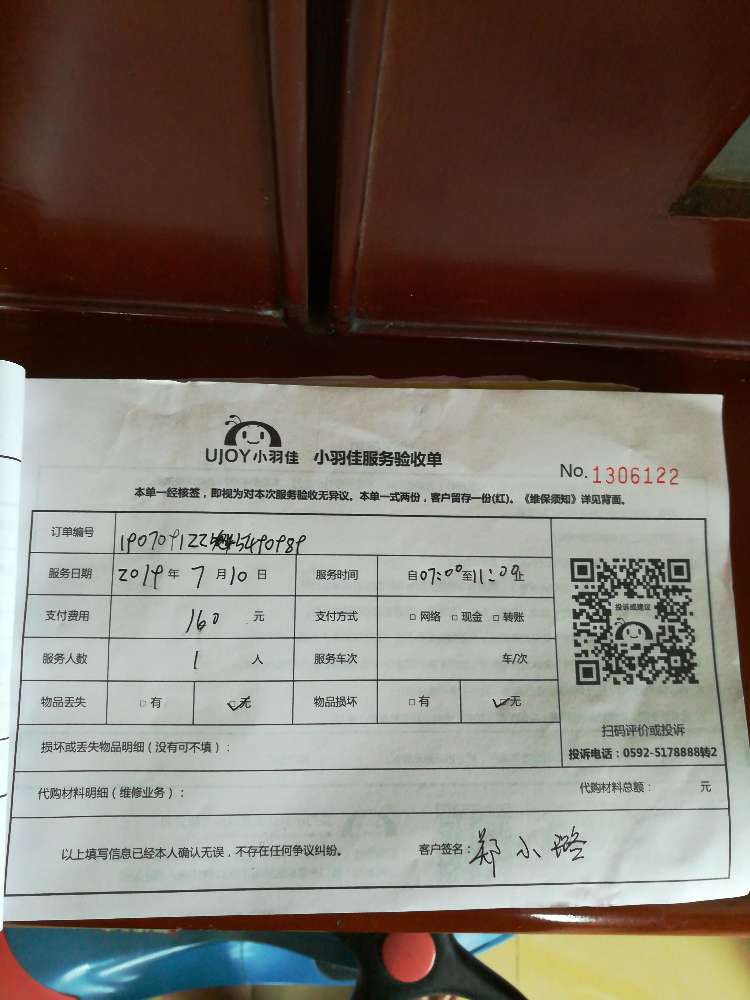 UJOY小羽佳 小羽佳服务验收单
No. 1306122
本单一经核签，即视为对本次服务验收无异议。本单一式两份，客户留存一份(红)。《维保须知》详见背面。
订单编号 190709122 5490989
服务日期 2019年 7月10日 服务时间 自07:00至11:00止
支付费用 160 元 支付方式 □网络 □现金 □转账
投诉或建议
服务人数 1 人 服务车次 车/次
物品丢失 □有 ☑无 物品损坏 □有 ☑无
扫码评价或投诉
投诉电话：0592-5178888转2
损坏或丢失物品明细（没有可不填）：
代购材料明细（维修业务）： 代购材料总额： 元
以上填写信息已经本人确认无误，不存在任何争议纠纷。 客户签名：郑小